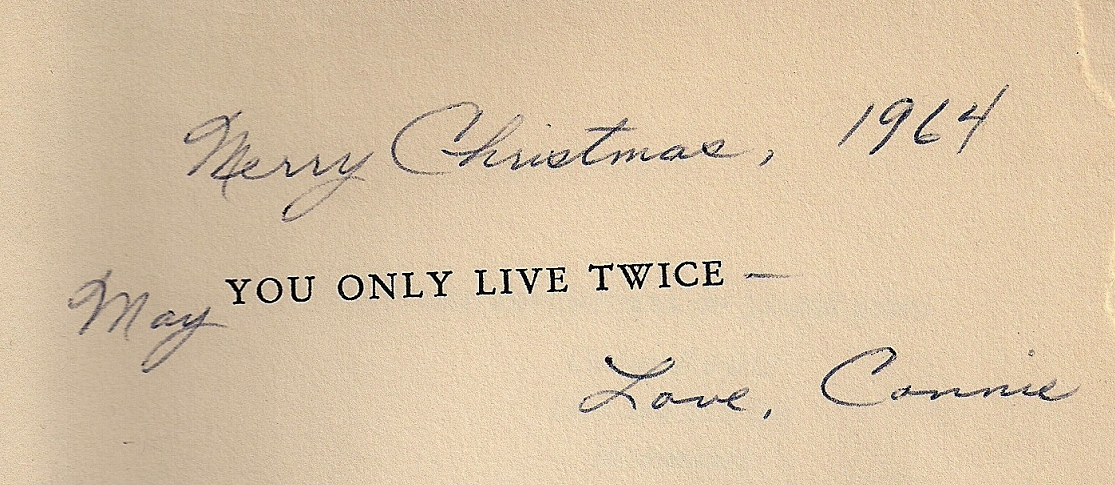 Merry Christmas, 1964
May YOU ONLY LIVE TWICE —
Love, Connie